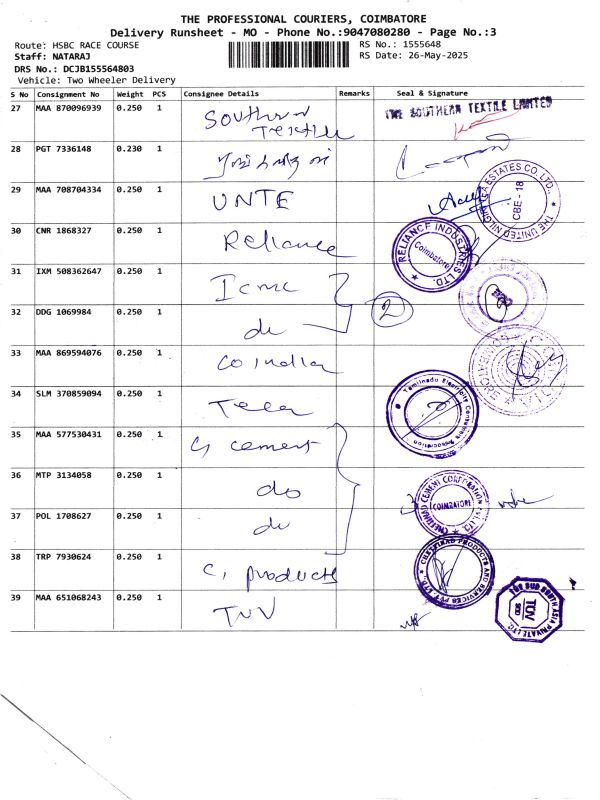 THE PROFESSIONAL COURIERS, COIMBATORE
Delivery Runsheet - MO - Phone No.:9047080280 - Page No.:3
Route: HSBC RACE COURSE
RS No.: 1555648
Staff: NATARAJ
RS Date: 26-May-2025
DRS No.: DCJB155564803
Vehicle: Two Wheeler Delivery
S No Consignment No Weight PCS Consignee Details Remarks Seal & Signature
27 MAA 870096939 0.250 1 Southern Textile THE SOUTHERN TEXTILE LIMITED
28 PGT 7336148 0.230 1
29 MAA 708704334 0.250 1 UNTE THE UNITED NILGIRI TEA ESTATES CO. LTD., CBE - 18
30 CNR 1868327 0.250 1 Reliance RELIANCE INDUSTRIES LTD. Coimbatore
31 IXM 508362647 0.250 1
32 DDG 1069984 0.250 1 do 2
33 MAA 869594076 0.250 1 Coindia
34 SLM 370859094 0.250 1 Teca Tamilnadu Electrical Contractors Association
35 MAA 577530431 0.250 1 C, cement
36 MTP 3134058 0.250 1 do CHETTINAD CEMENT CORPORATION PVT LTD COIMBATORE
37 POL 1708627 0.250 1 do
38 TRP 7930624 0.250 1 C, products CHETTINAD PRODUCTS AND SERVICES PVT LTD.
39 MAA 651068243 0.250 1 TUV TUV SUD SOUTH ASIA PRIVATE LTD. TUV SUD